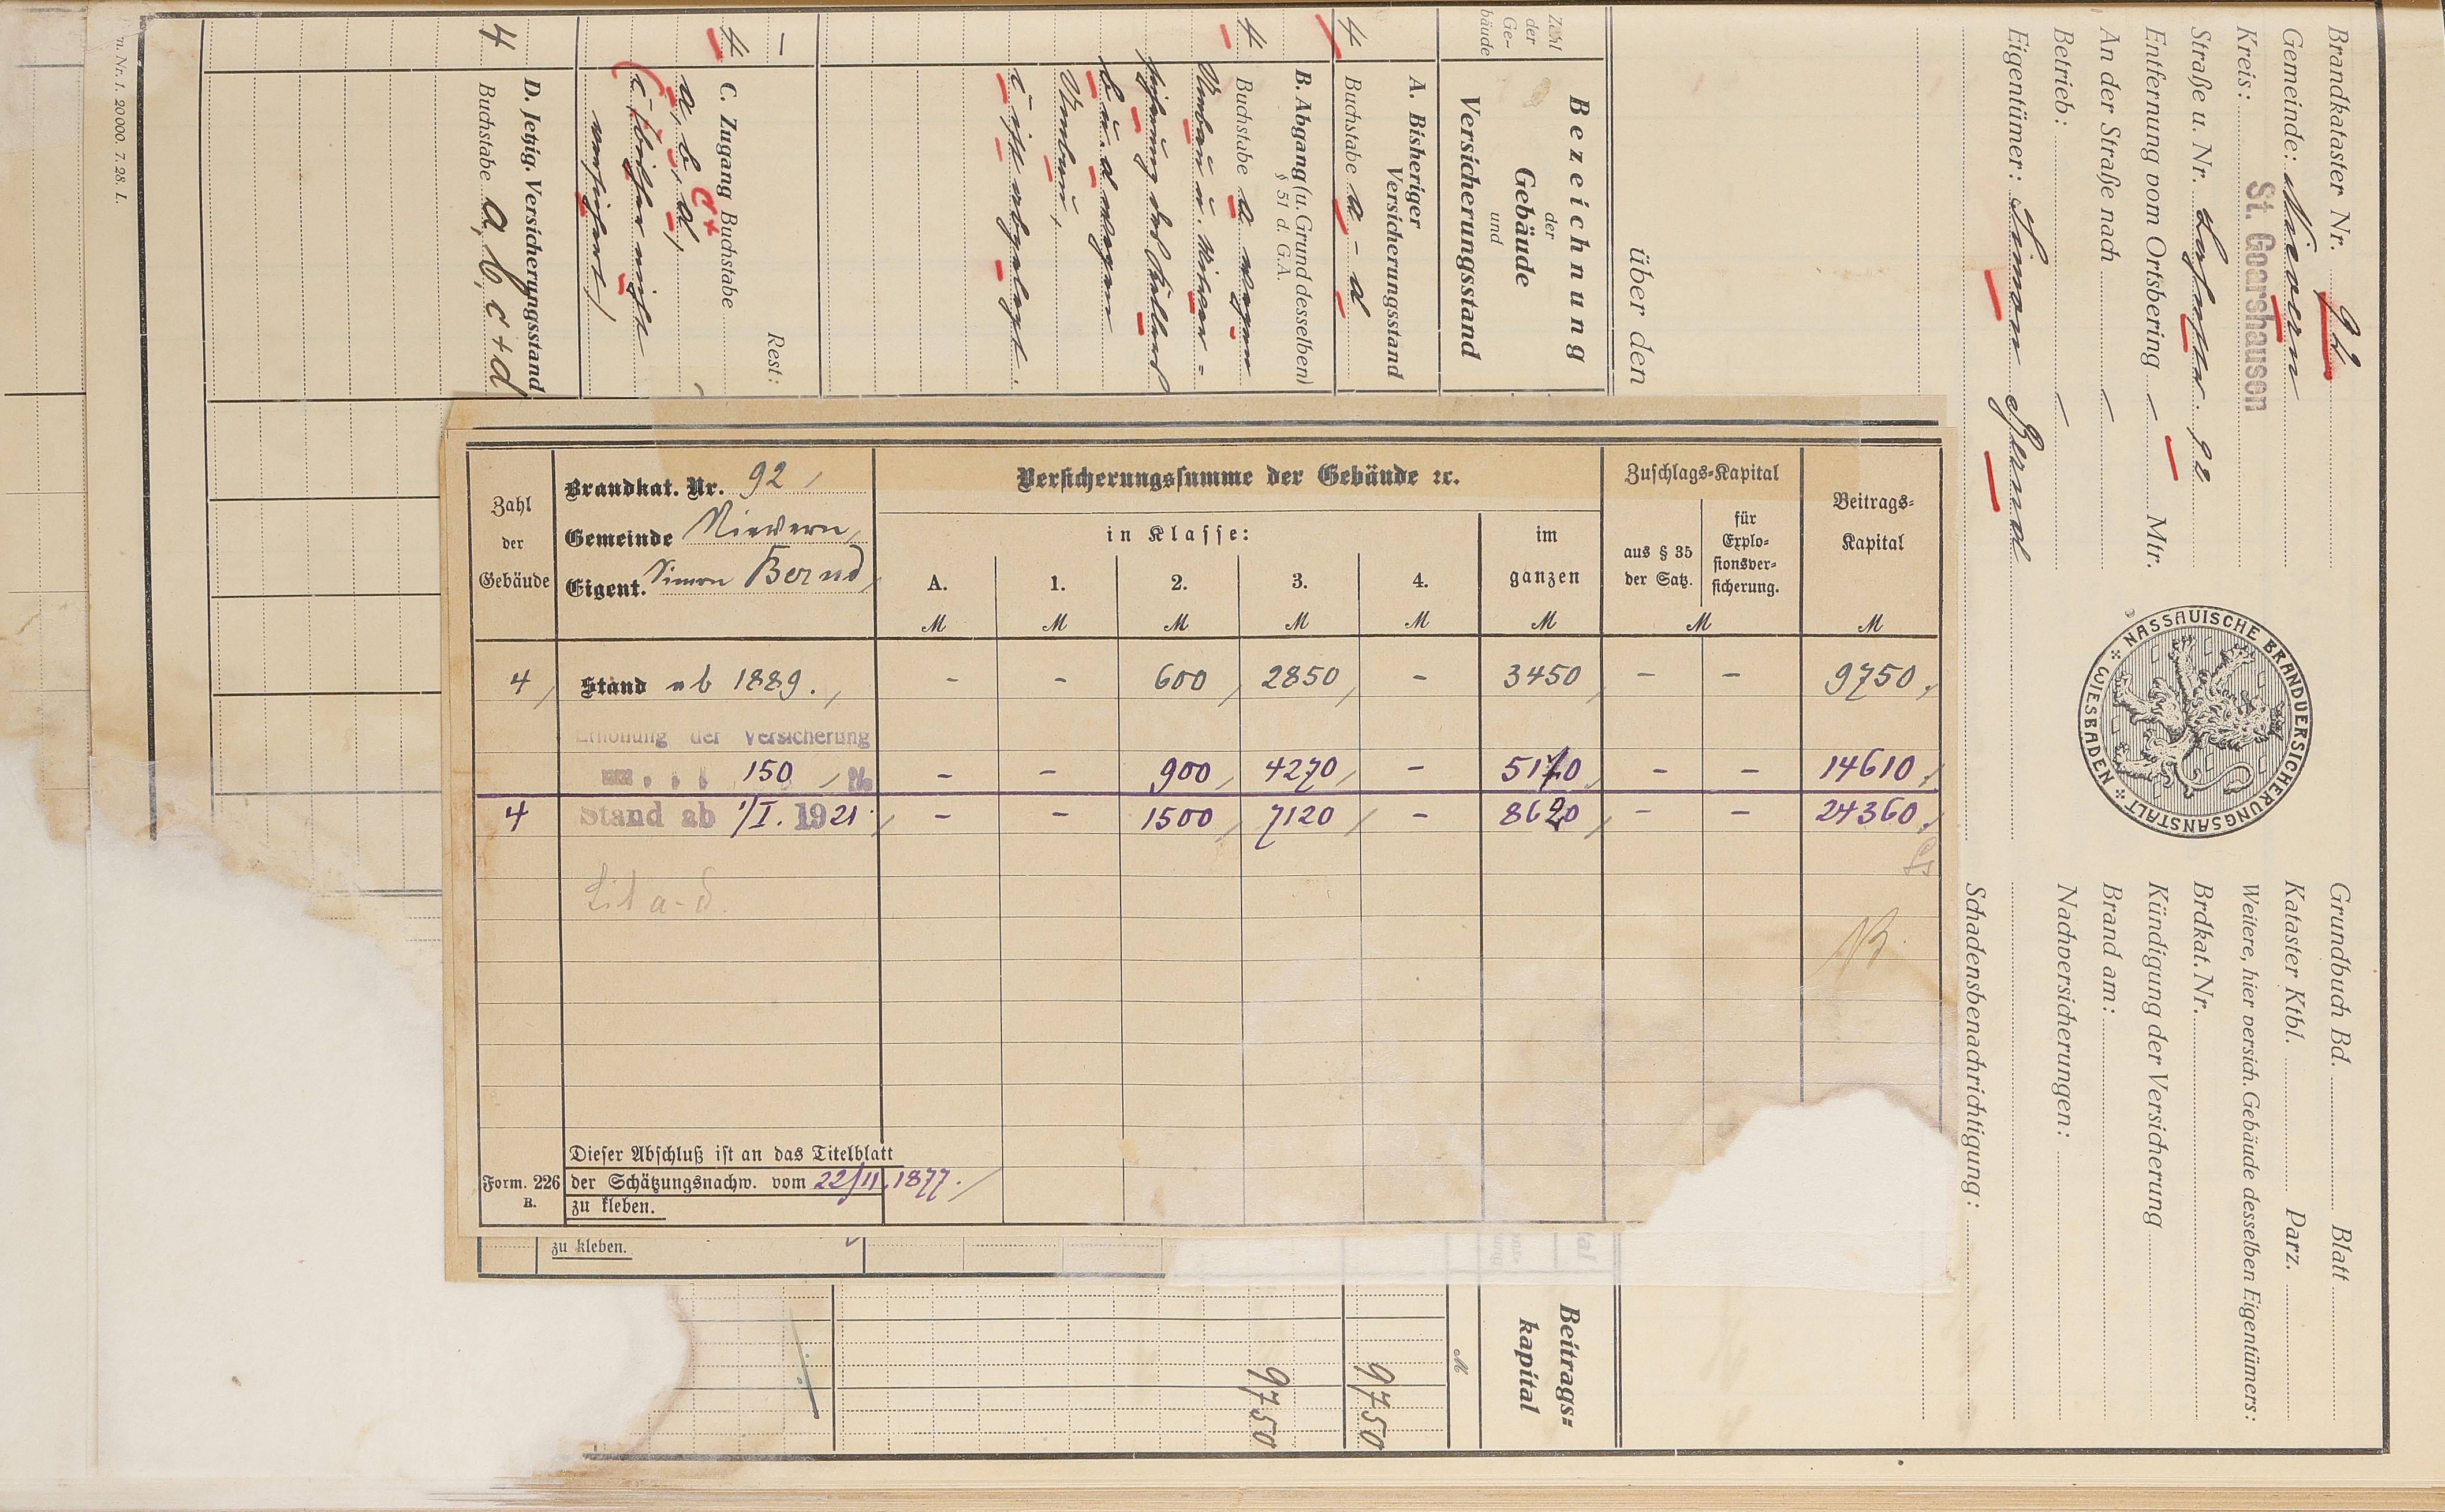 Brandkataster Nr. 92
Gemeinde: Nievern
Kreis: St. Goarshausen
Straße u. Nr. 92
Entfernung vom Ortsbering – Mtr.
An der Straße nach –
Betrieb: –
Eigentümer: Simon Bernd
NASSAUISCHE BRANDVERSICHERUNGSANSTALT
WIESBADEN
Grundbuch Bd. Blatt
Kataster Ktbl. Parz.
Weitere, hier versich. Gebäude desselben Eigentümers:
Brdkat. Nr.
Kündigung der Versicherung
Brand am:
Nachversicherungen:
Schadensbenachrichtigung:
über den
Zahl der Ge- bäude
Bezeichnung
der
Gebäude
und
Versicherungsstand
Beitrags- kapital
M
A. Bisheriger
Versicherungsstand
4 Buchstabe a - d 9750
B. Abgang (u. Grund desselben)
§ 51 d. G.A.
4 Buchstabe a wegen 9750
Umbau u.
b u. d wegen
Umbau,
c ist abgelegt.
– Rest:
C. Zugang Buchstabe
4 a, b, d, c+
(c bisher nicht
versichert)
D. Jetzig. Versicherungsstand
4 Buchstabe a, b, c + d
Nr. 1. 20000. 7. 28. L.
Zahl
der
Gebäude
Brandkat. Nr. 92
Gemeinde Nievern
Eigent. Simon Bernd
Versicherungssumme der Gebäude ꝛc.
in Klasse:
A. 1. 2. 3. 4.
im
ganzen
Zuschlags-Kapital
aus § 35
der Satz.
für
Explo-
sionsver-
sicherung.
Beitrags-
Kapital
M M M M M M M M
4 Stand ab 1889. – – 600 2850 – 3450 – – 9750
Erhöhung der Versicherung
um 150 % – – 900 4270 – 5170 – – 14610
4 Stand ab 1/I. 1921 – – 1500 7120 – 8620 – – 24360
Lit a-d.
Form. 226
B.
Dieser Abschluß ist an das Titelblatt
der Schätzungsnachw. vom 22/11 1877.
zu kleben.
zu kleben.